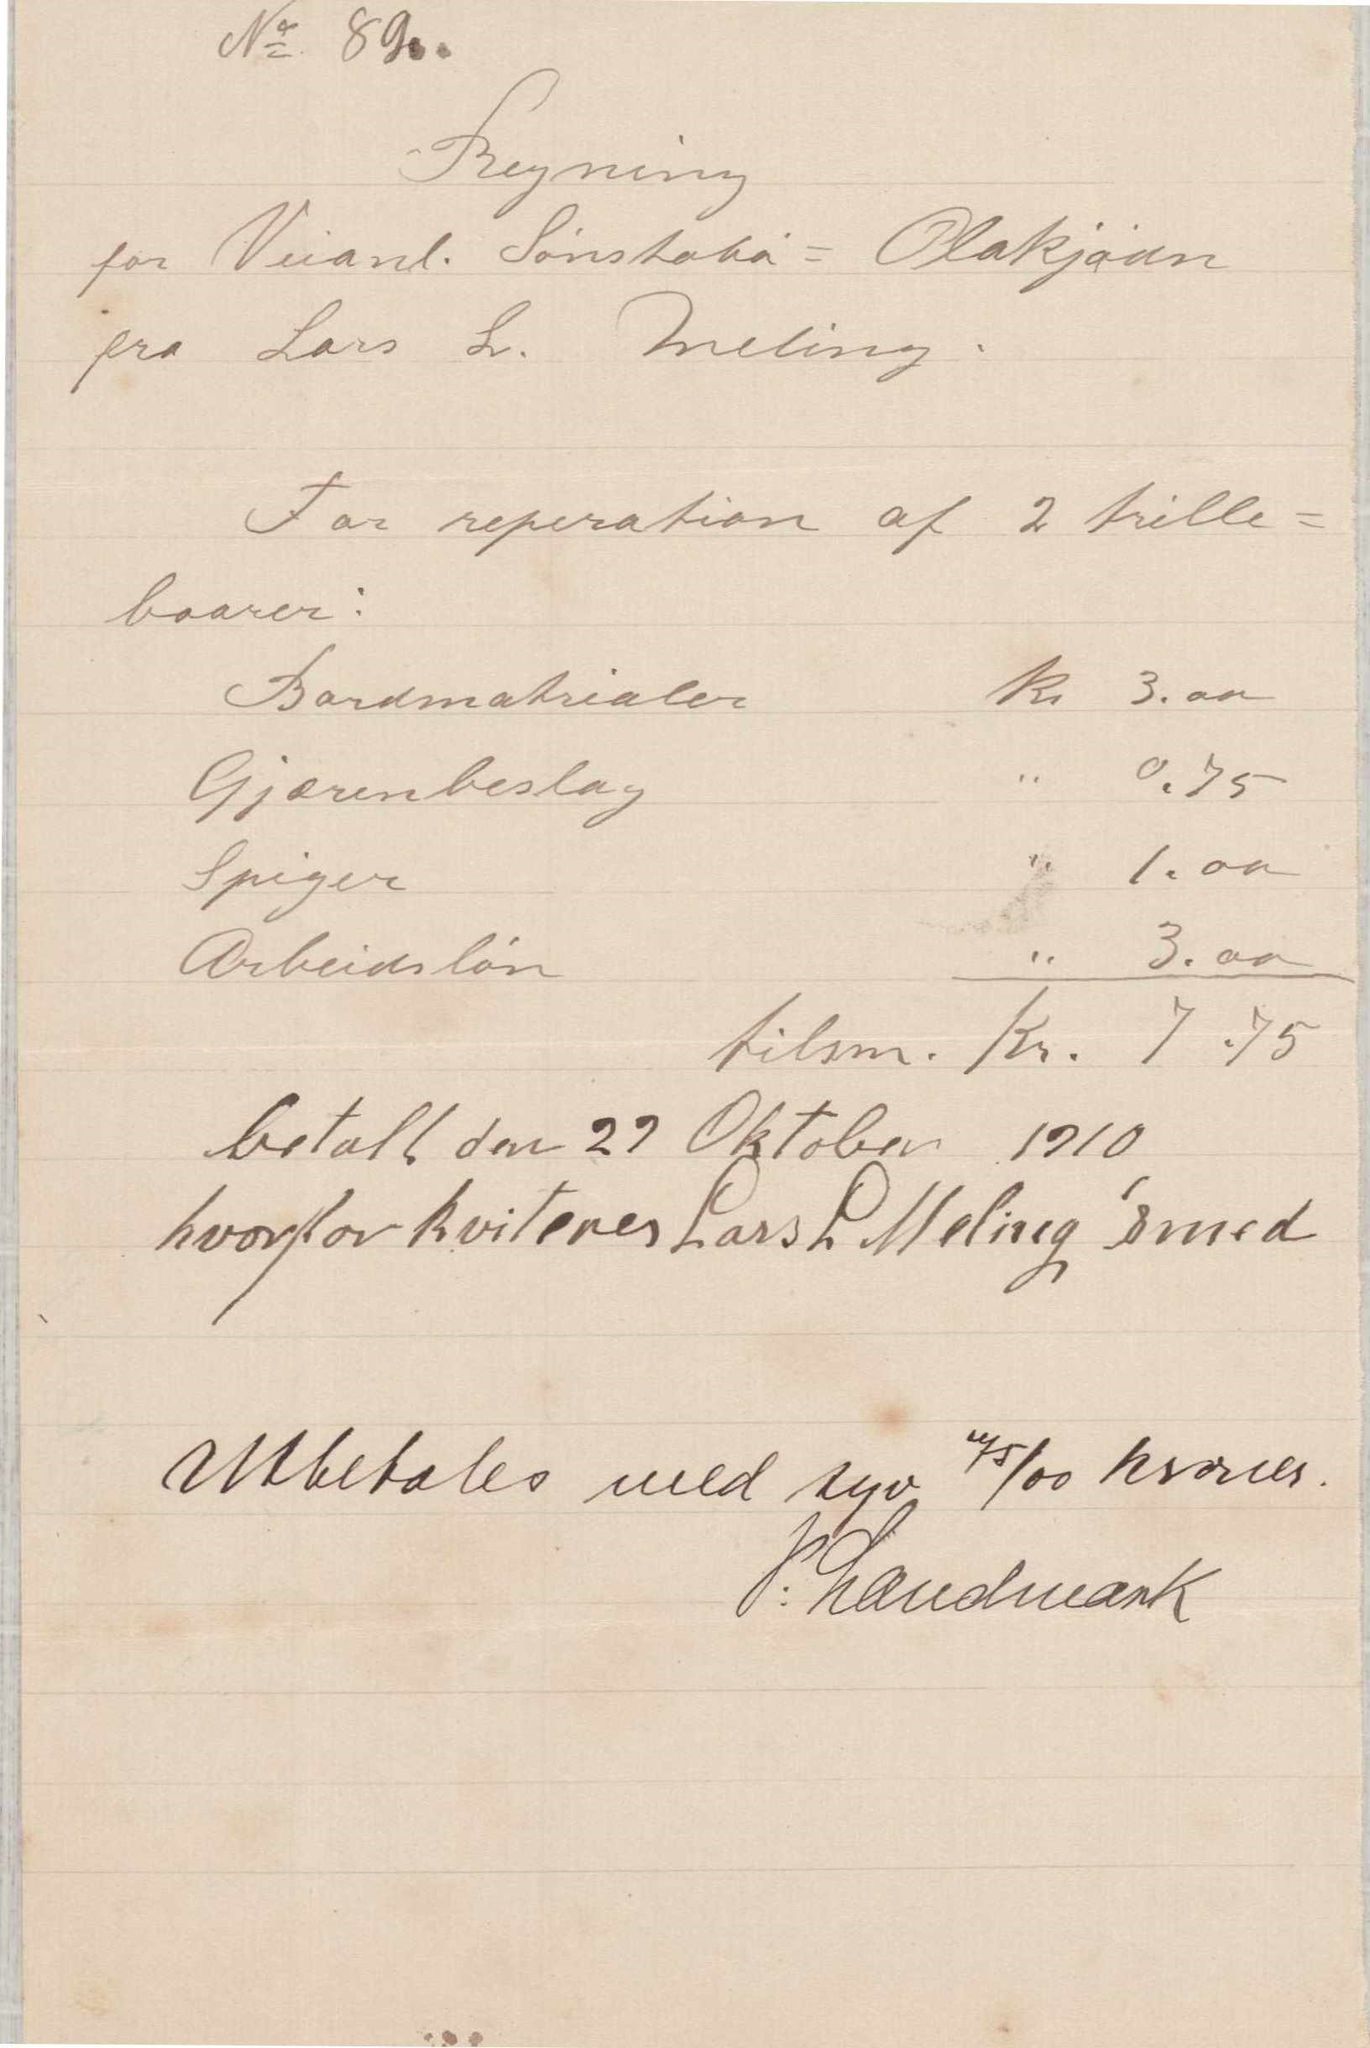 No 89.
Regning
for Veianl. Sönstabö = Olakjödn
fra Lars L. Meling.
For reperation af 2 trille=
baarer:
Bordmatrialer Kr 3.00
Gjærenbeslag " 0.75
Spiger " 1.00
Arbeidslön " 3.00
tilsm. Kr. 7.75
betalt den 29 Oktober 1910
hvorfor kviteres Lars L Meling smed
Utbetales med syv 75/00 kroner.
P. Landmark